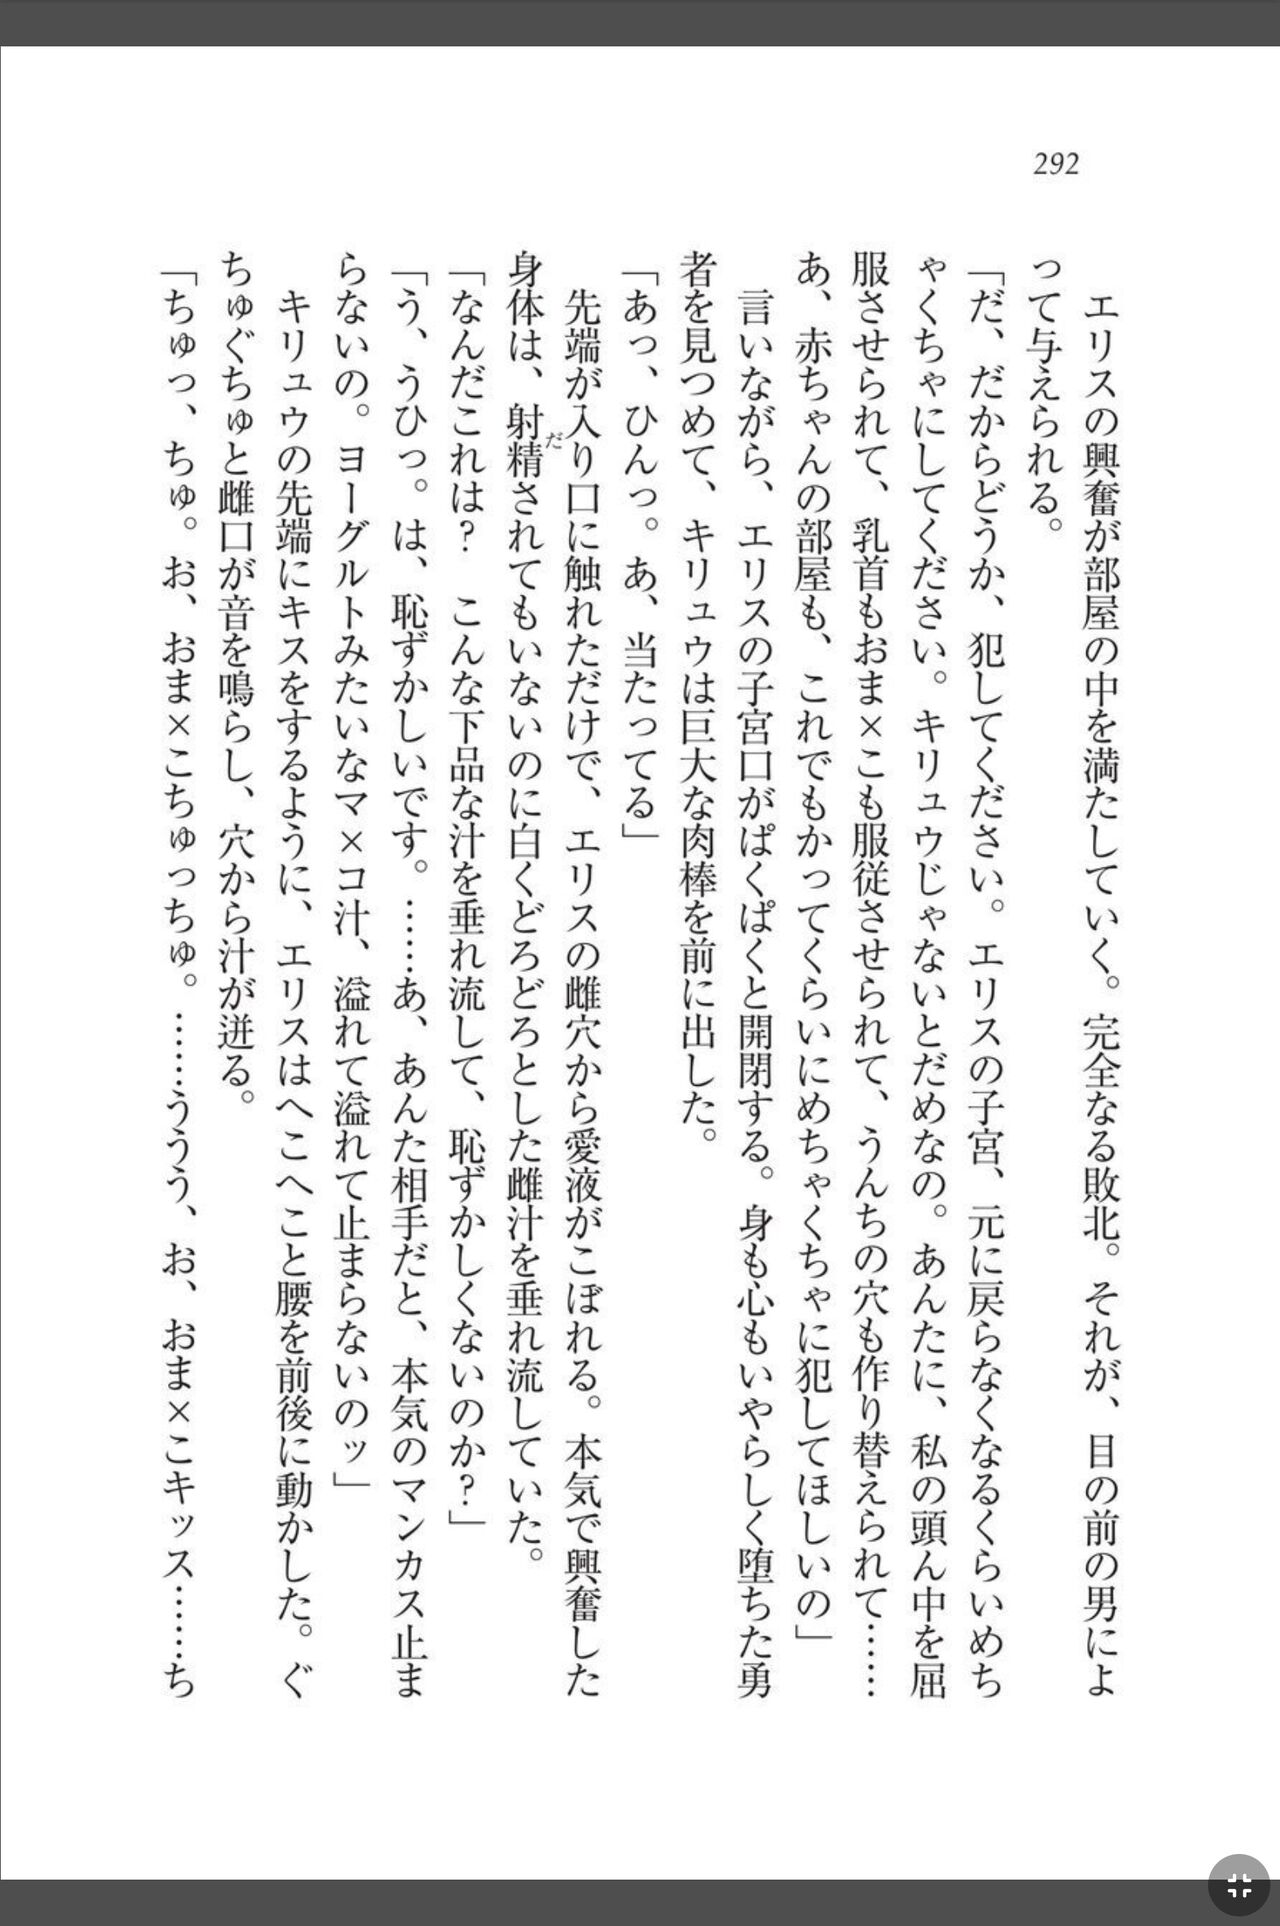 292
エリスの興奮が部屋の中を満たしていく。完全なる敗北。それが、目の前の男によ
って与えられる。
「だ、だからどうか、犯してください。エリスの子宮、元に戻らなくなるくらいめち
ゃくちゃにしてください。キリュウじゃないとだめなの。あんたに、私の頭ん中を屈
服させられて、乳首もおま×こも服従させられて、うんちの穴も作り替えられて……
あ、赤ちゃんの部屋も、これでもかってくらいにめちゃくちゃに犯してほしいの」
言いながら、エリスの子宮口がぱくぱくと開閉する。身も心もいやらしく堕ちた勇
者を見つめて、キリュウは巨大な肉棒を前に出した。
「あっ、ひんっ。あ、当たってる」
先端が入り口に触れただけで、エリスの雌穴から愛液がこぼれる。本気で興奮した
身体は、射精されてもいないのに白くどろどろとした雌汁を垂れ流していた。
だ
「なんだこれは？　こんな下品な汁を垂れ流して、恥ずかしくないのか？」
「う、うひっ。は、恥ずかしいです。……あ、あんた相手だと、本気のマンカス止ま
らないの。ヨーグルトみたいなマ×コ汁、溢れて溢れて止まらないのッ」
キリュウの先端にキスをするように、エリスはへこへこと腰を前後に動かした。ぐ
ちゅぐちゅと雌口が音を鳴らし、穴から汁が迸る。
「ちゅっ、ちゅ。お、おま×こちゅっちゅ。……ううう、お、おま×こキッス……ち